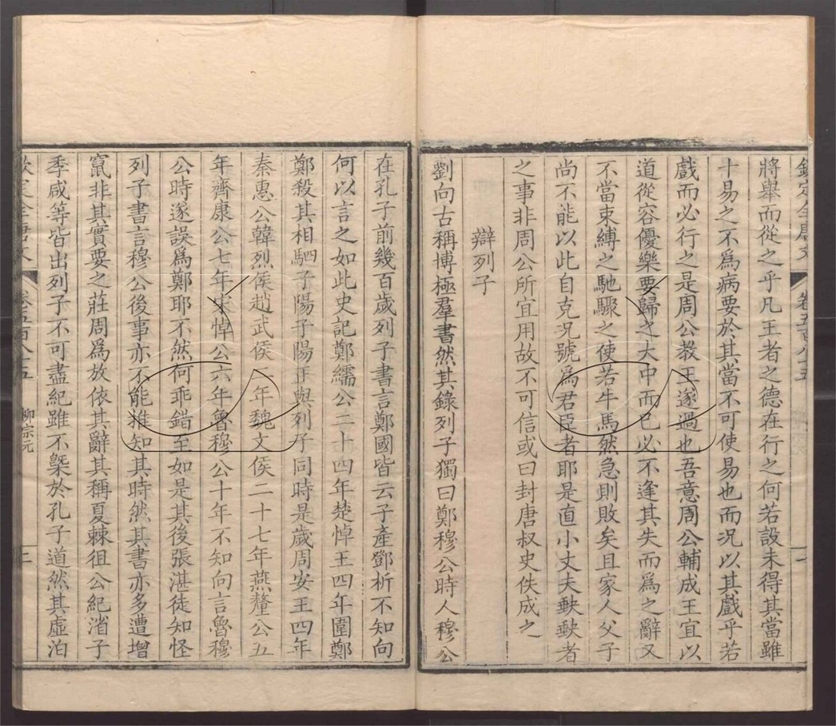 將舉而從之乎凡王者之德在行之何若設未得其當雖
十易之不爲病要於其當不可使易也而況以其戲乎若
戲而必行之是周公教王遂過也吾意周公輔成王宜以
道從容優樂要歸之大中而已必不逢其失而爲之辭又
不當束縛之馳驟之使若牛馬然急則敗矣且家人父子
尚不能以此自克況號爲君臣者耶是直小丈夫𡙇𡙇者
之事非周公所宜用故不可信或曰封唐叔史佚成之
辯列子
劉向古稱博極羣書然其錄列子獨曰鄭穆公時人穆公
在孔子前幾百歲列子書言鄭國皆云子產鄧析不知向
何以言之如此史記鄭繻公二十四年楚悼王四年圍鄭
鄭殺其相駟子陽子陽正與列子同時是歲周安王四年
秦惠公韓烈侯趙武侯二年魏文侯二十七年燕釐公五
年齊康公七年宋悼公六年魯穆公十年不知向言魯穆
公時遂誤爲鄭耶不然何乖錯至如是其後張湛徒知怪
列子書言穆公後事亦不能推知其時然其書亦多遭增
竄非其實要之莊周爲放依其辭其稱夏棘徂公紀渻子
季咸等皆出列子不可盡紀雖不槩於孔子道然其虛泊
欽定全唐文 卷五百八十五 柳宗元 二